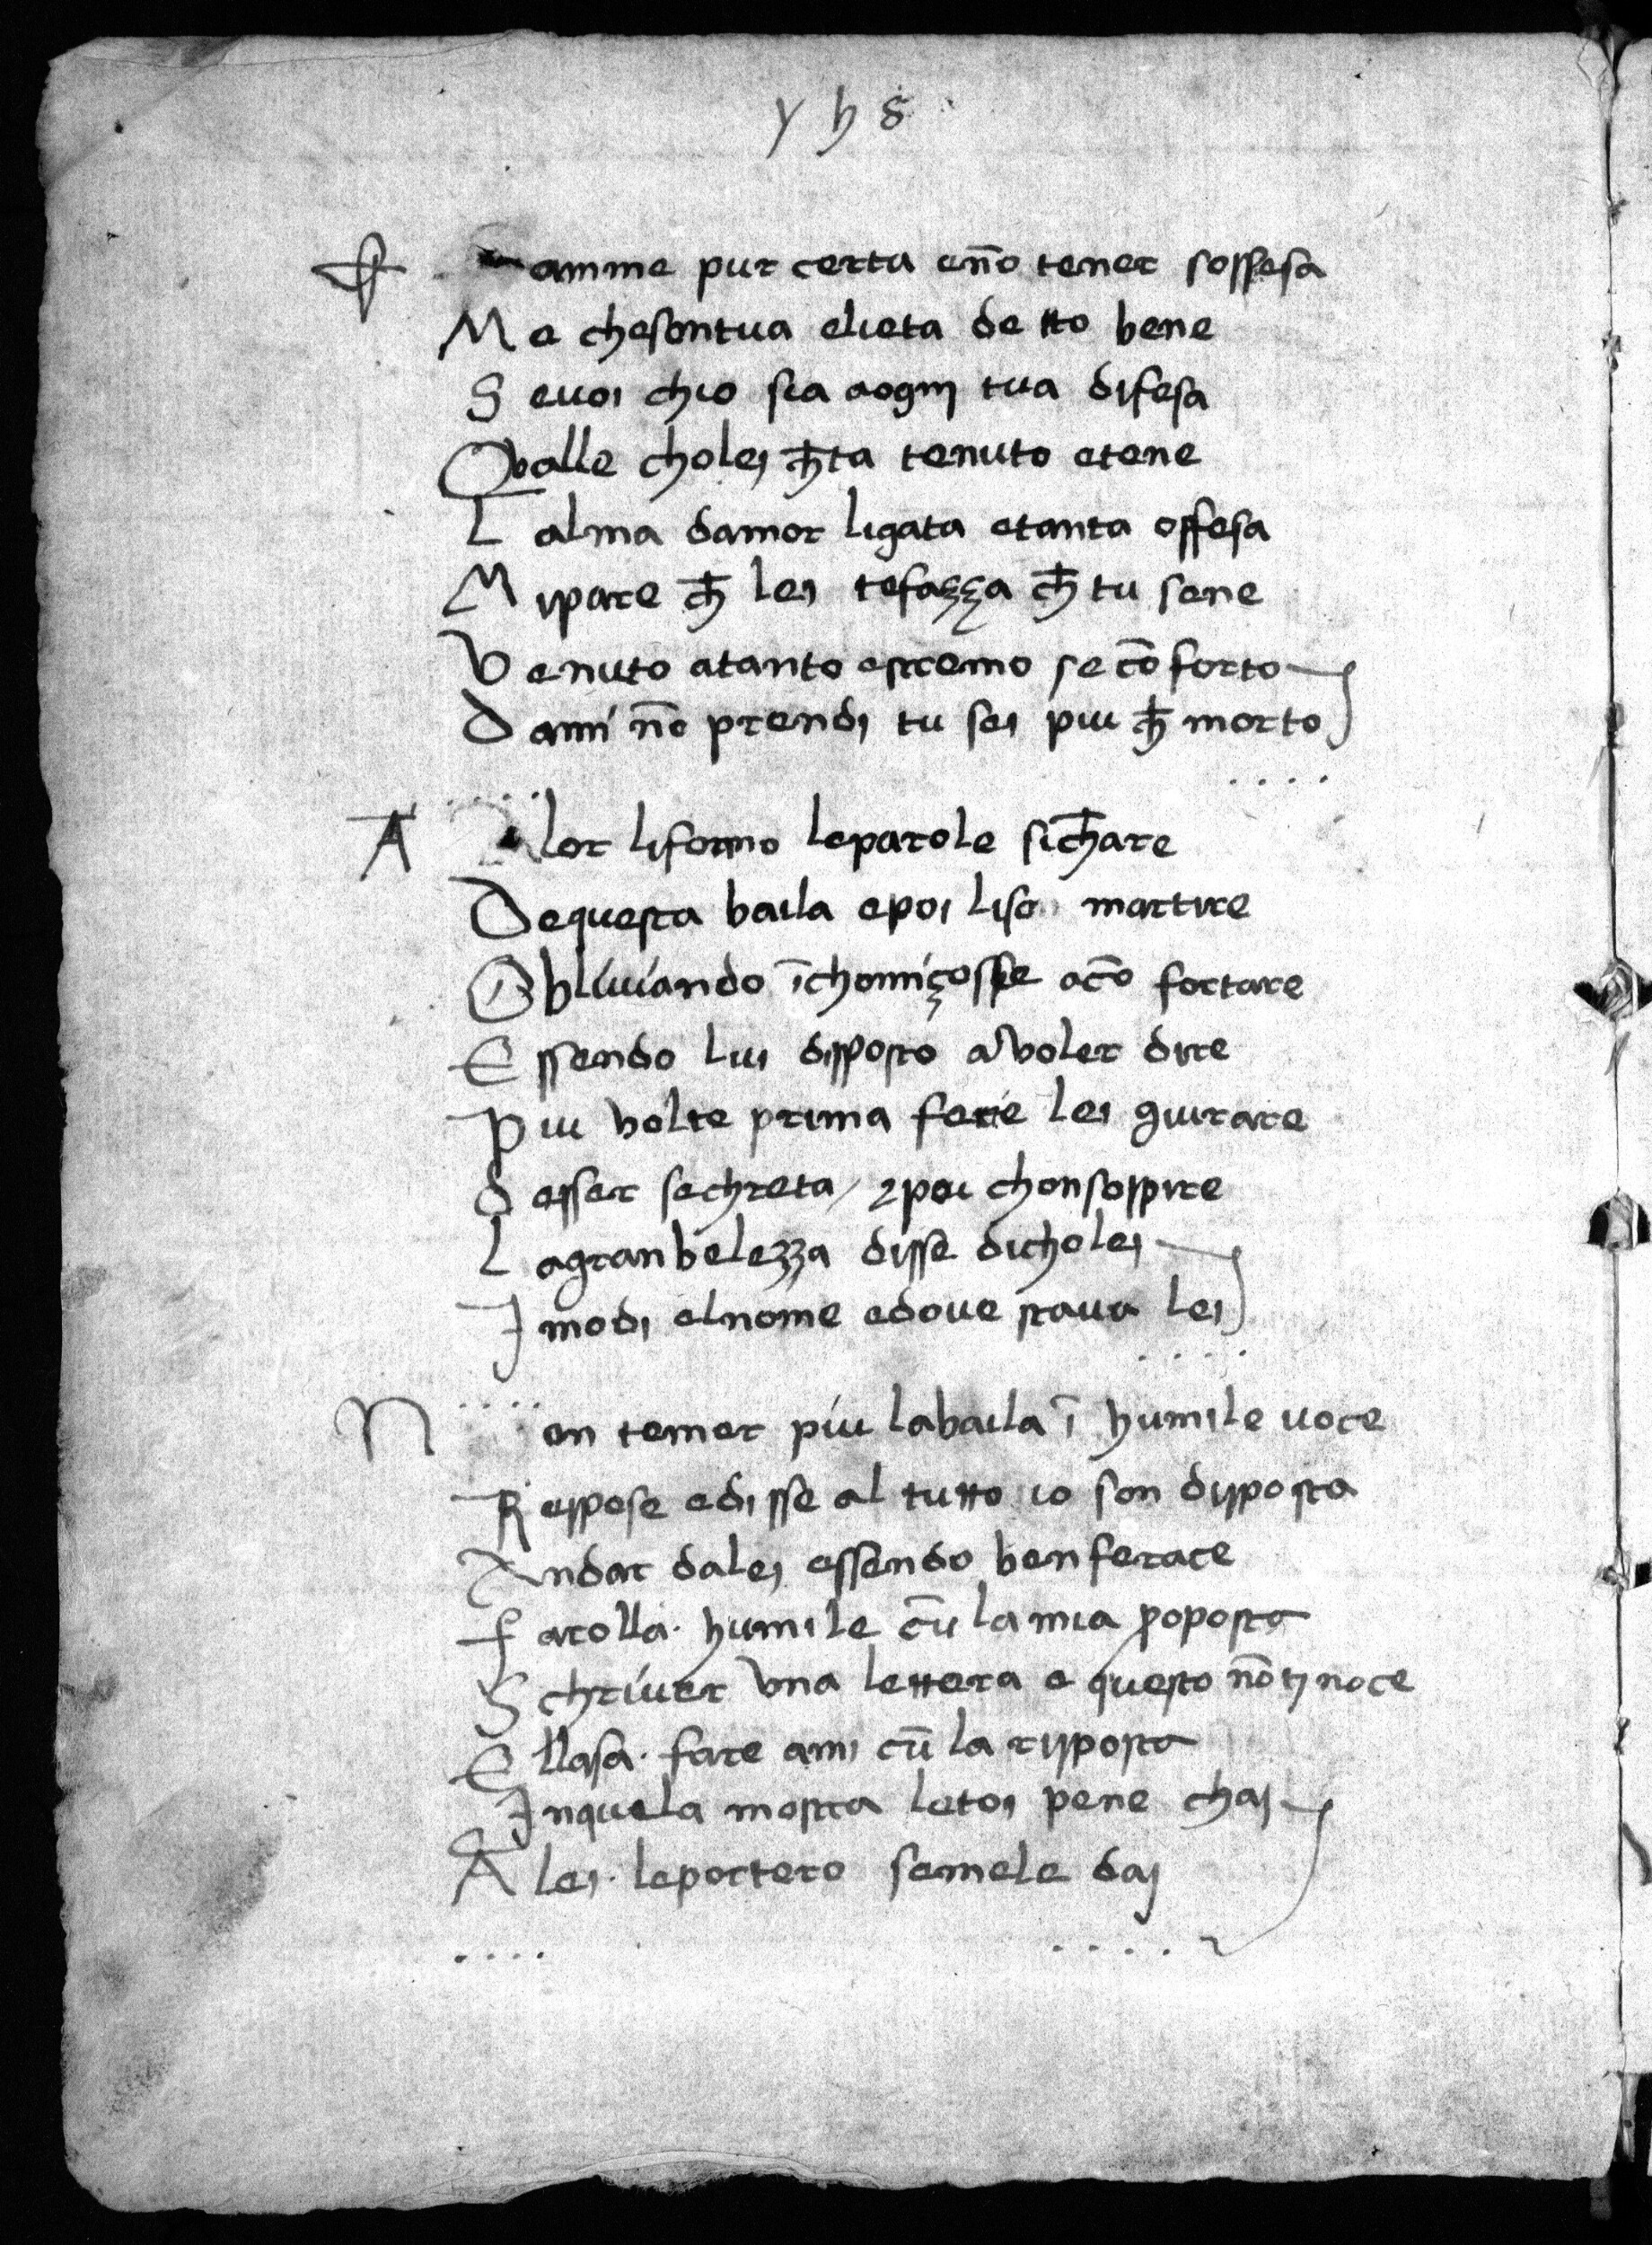 yhs
F amme pur certa en̄o tener sospesa
Me chesontua elieta de tto bene
Seuoi chio sia aognj tua difesa
Qualle cholej ch̄ta tenuto etene
Lalma damor ligata etanta offesa
Mipare ch̄ lei tefazza ch̄ tu sene
Venuto atanto estremo se cō forto
Dami nō prendi tu sei piu ch̄ morto
A Alor liformo leparole sich̄are
Dequesta baila epoi liso martire
Obliuiando īchomiçosse acō fortare
Essendo lui disposto a voler dire
Piu volte prima fece lei giurare
desser sechreta / zpoi chonsospire
Lagranbelezza disse dicholej
Imodi elnome edoue staua lei
N on temer piu labaila ī humile uoce
Respose edisse al tutto io son disposta
Andar dalej essendo ben ferace
farolla. humile cū lamia proposta
Schriuer vna lettera e questo nō tj noce
Ellasa. fare ami cū la risposta
Inquela mostra letoi pene chaj
A lei. leportero semele daj